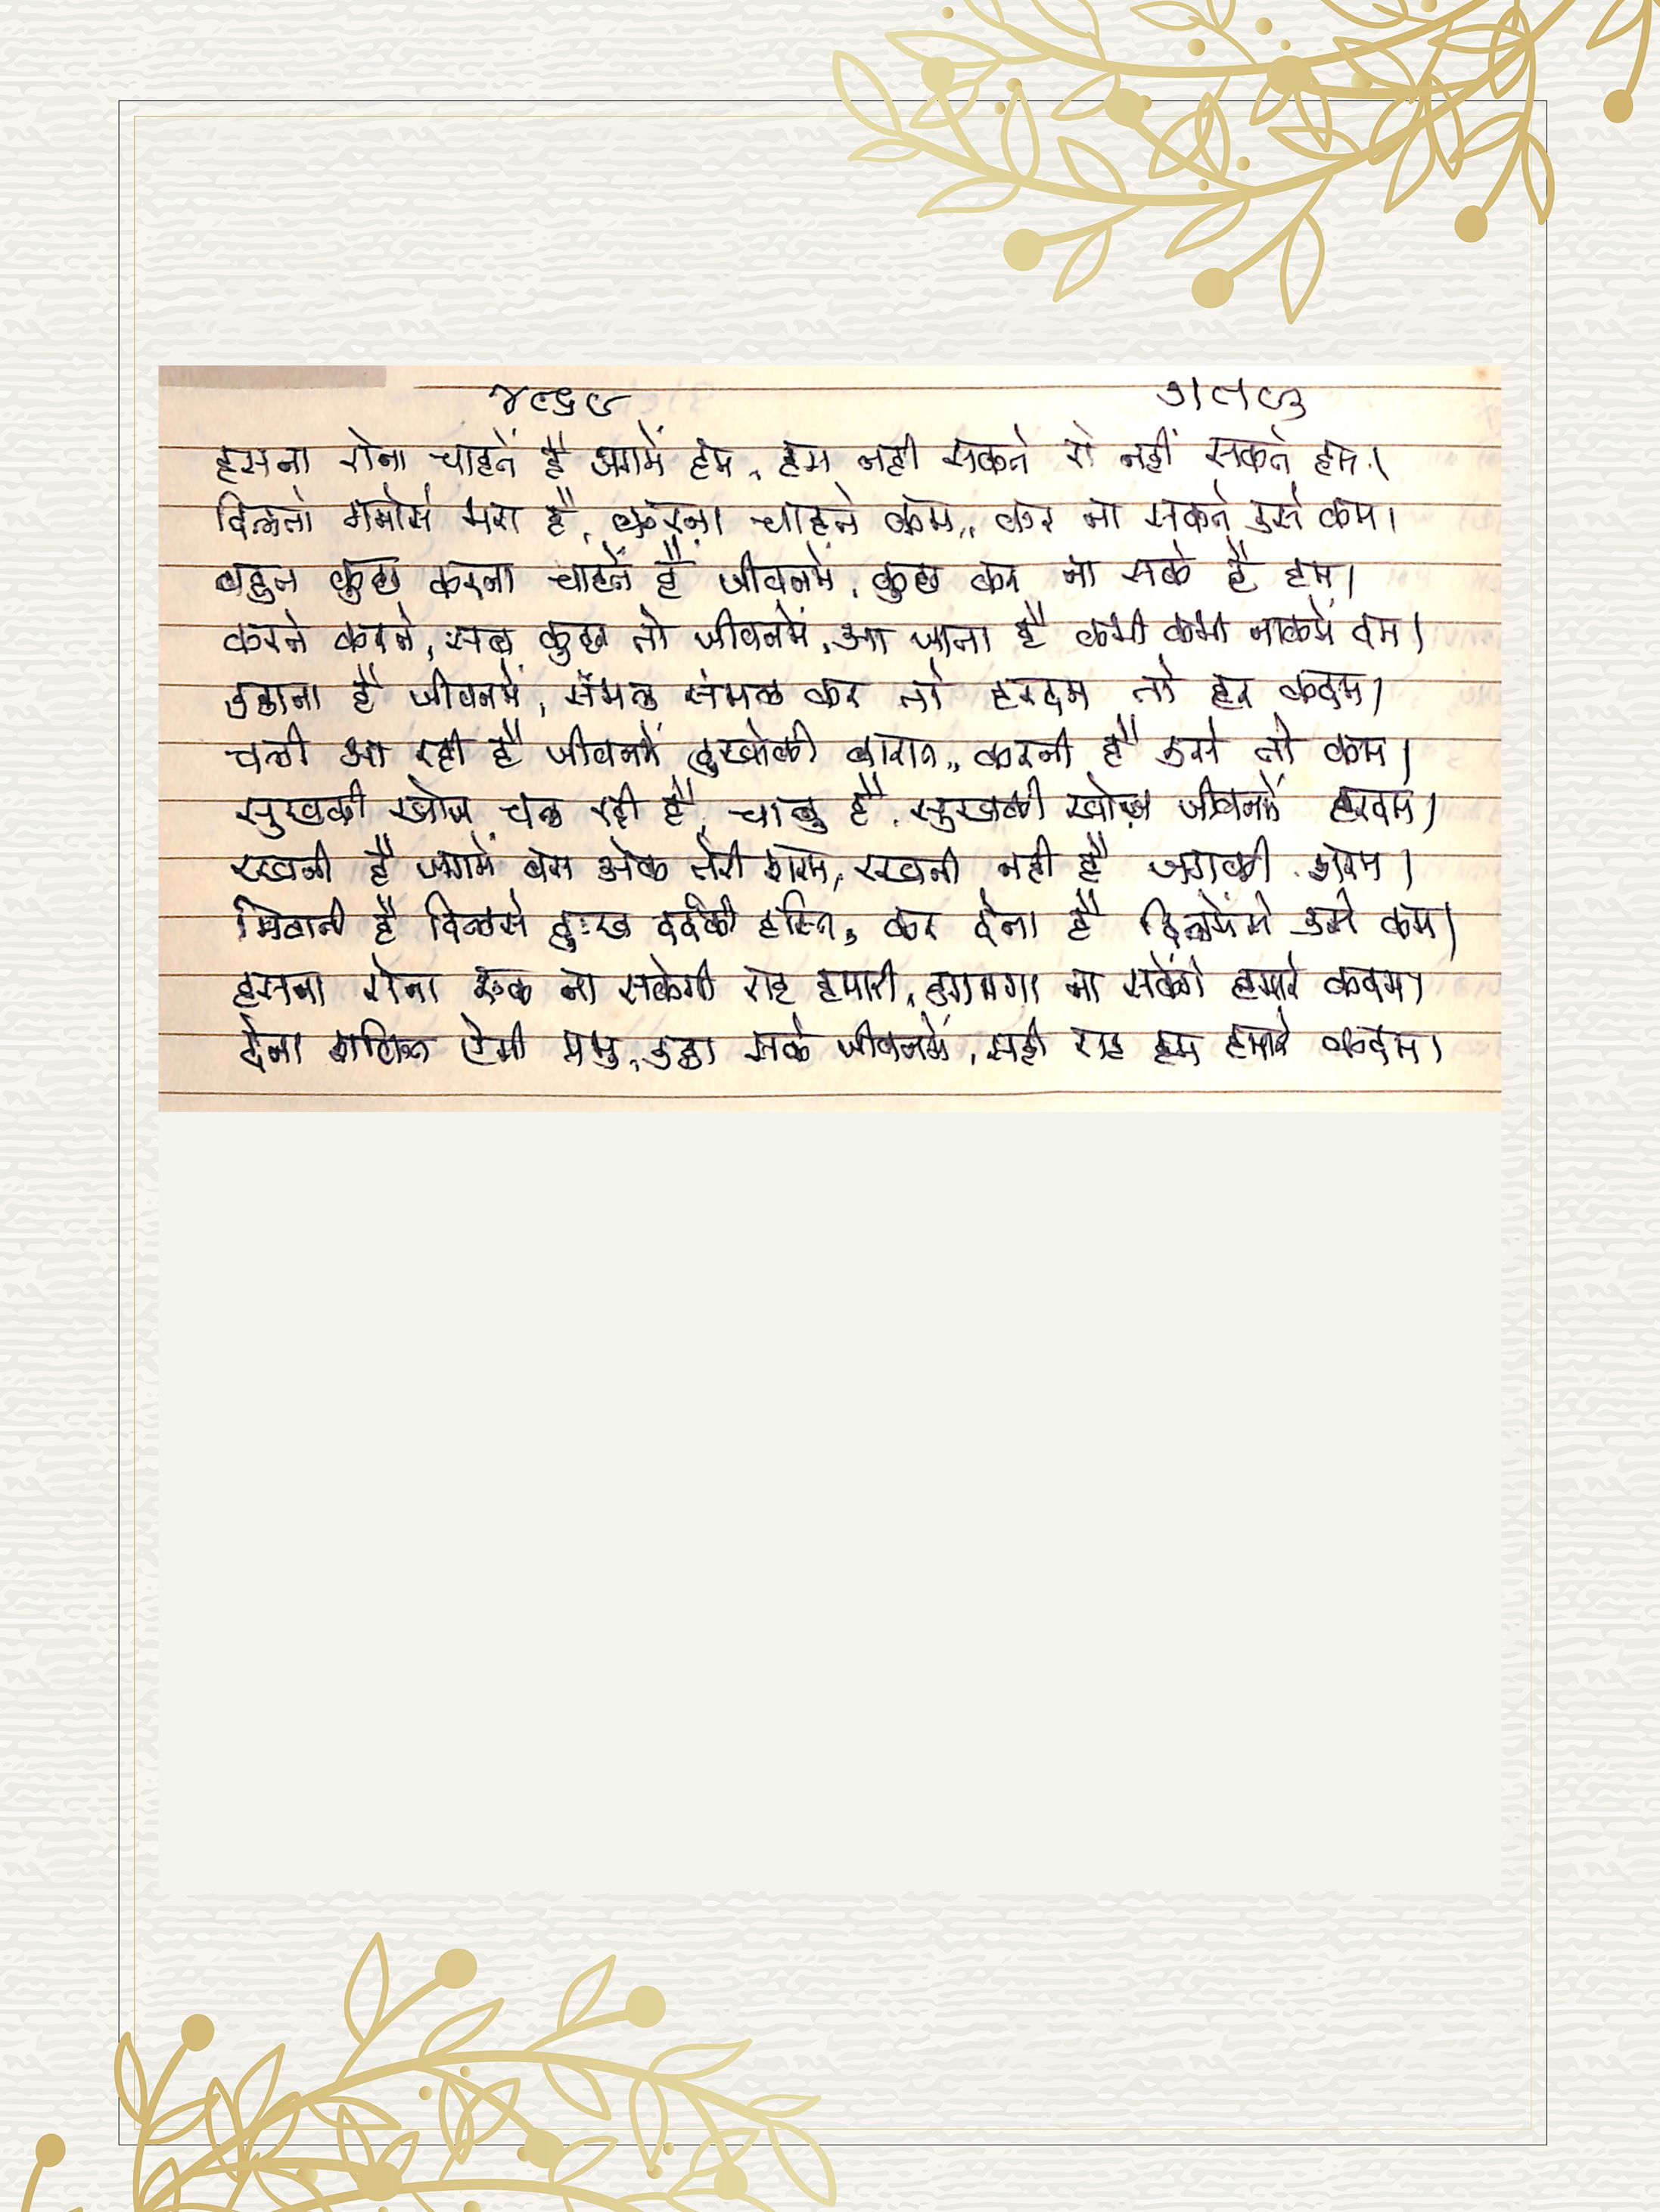 हसना रोना चाहतें है जगमें हम, हस नही सकते रो नहीं सकते हम।
दिलतो गमोसे भरा है, करना चाहते कम, कर ना सकते उसे कम।
बहुत कुछ करना चाहतें है जीवनमें, कुछ कर ना सके है हम।
करते करते, सब कुछ तो जीवनमें, आ जाता है कभी कभी नाकमें दम।
उठाना है जीवनमें, संभल संभल कर तो हरदम तो हर कदम।
चली आ रही है जीवनमें दुखोकी बारात, करनी है उसे तो कम।
सुखकी खोज चल रही है, चालु है, सुखकी खोज जीवनमें हरदम।
रखनी है जगमें बस अेक तेरी शरम, रखनी नही है जगकी शरम।
मिटानी है दिलसे दुःख दर्दकी हस्ति, कर देना है दिलमेंसे उसे कम।
हसना रोना रूक ना सकेगी राह हमारी, डगमगा ना सकेंगे हमारे कदम।
देना शक्ति ऐसी प्रभु, उठा सके जीवनमें, सही राह हम हमारे कदम।